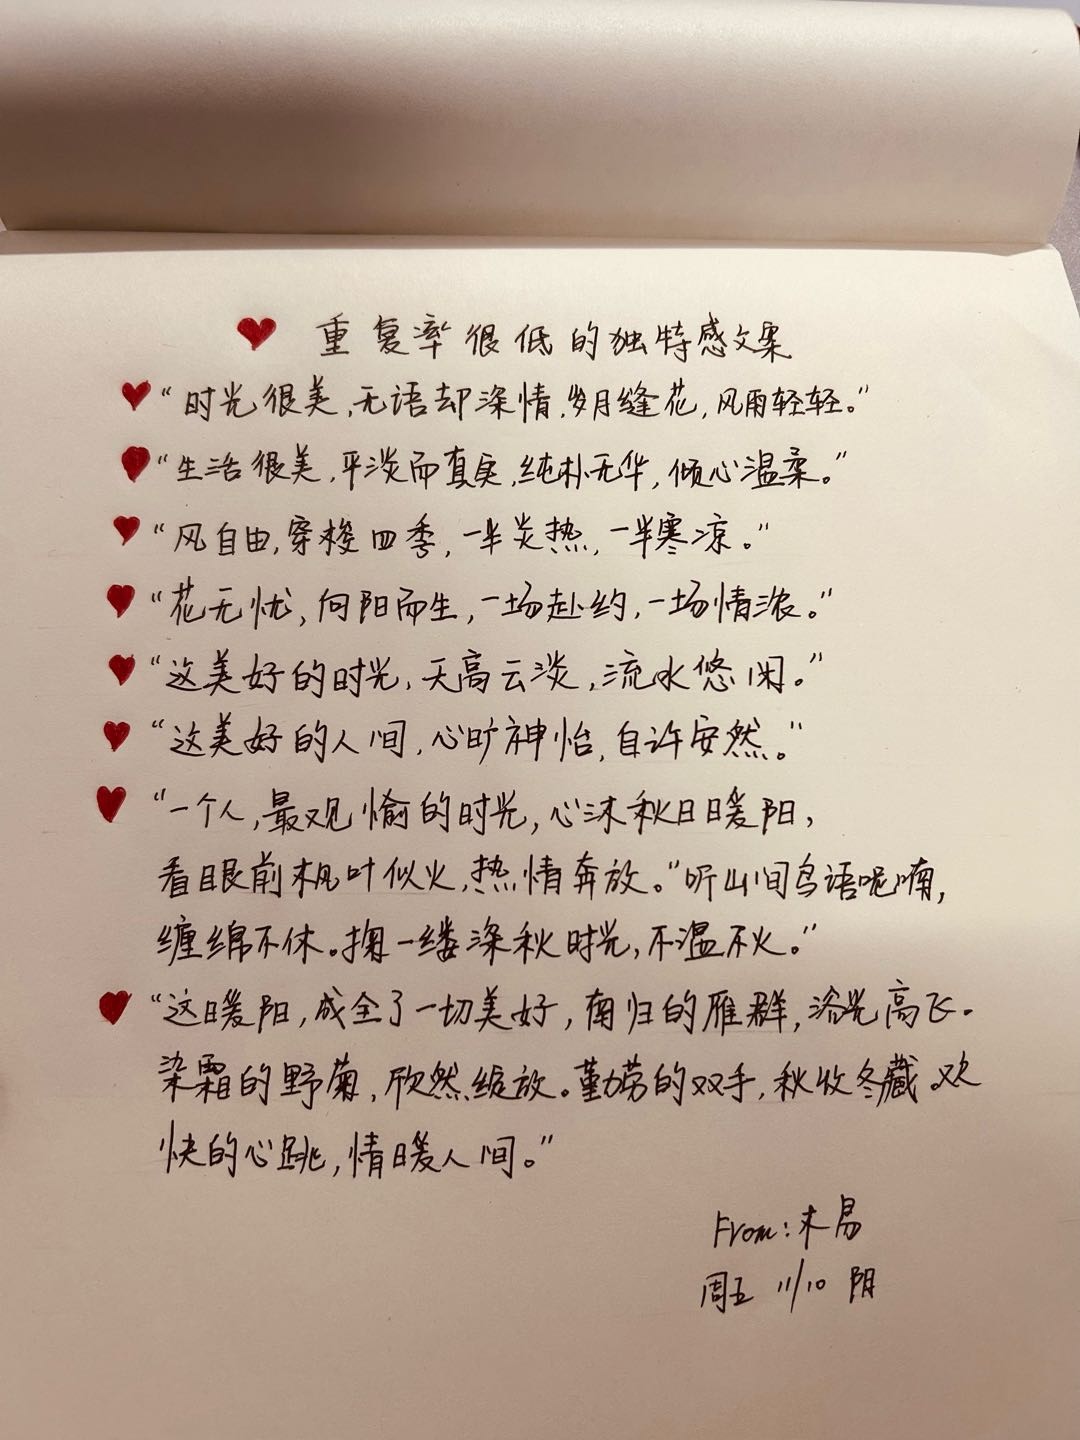 ♥ 重复率很低的独特感文案
♥ “时光很美,无语却深情,岁月缝花,风雨轻轻。”
♥ “生活很美,平淡而真实,纯朴无华,倾心温柔。”
♥ “风自由,穿梭四季,一半炎热,一半寒凉。”
♥ “花无忧,向阳而生,一场赴约,一场情浓。”
♥ “这美好的时光,天高云淡,流水悠闲。”
♥ “这美好的人间,心旷神怡,自许安然。”
♥ “一个人,最观愉的时光,心沐秋日暖阳,
看眼前枫叶似火,热情奔放。”听山间鸟语呢喃,
缠绵不休。掬一缕深秋时光,不温不火。”
♥ “这暖阳,成全了一切美好,南归的雁群,浴光高飞.
染霜的野菊,欣然绽放。勤劳的双手,秋收冬藏。欢
快的心跳,情暖人间。”
From:木易
周五 11/10 阴